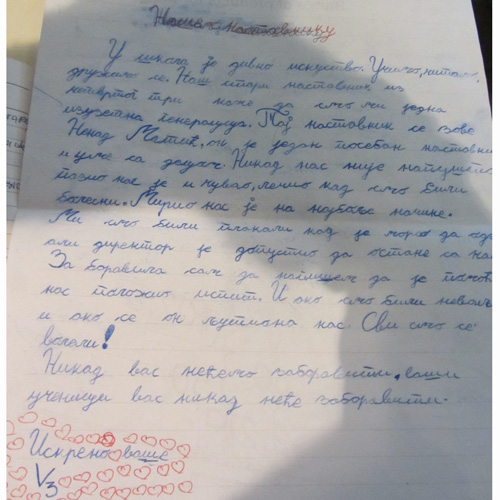 Нашом наставнику
У школи је дивно искуство. Учимо,
дружимо се. Наш стари наставник из
четвртог три каже да смо ми једна
изузетна генерација. Тај наставник се зове
Ненад он је један посебан наставник
и уме са децом. Никад нас није
пазио нас је и чувао, лечио кад смо били
болесни. Мирио нас је на најбоље начине.
Ми смо били плакали кад је морао да
али директор је допустио да остане са
За боравила сам да напишем да је
нас положио испит. И ако смо били
и ако се он љутио на нас. Сви смо се
волели!
Никад вас нећемо заборавити, ваши
ученици вас никад неће заборавити.
Искрено ваше
V3